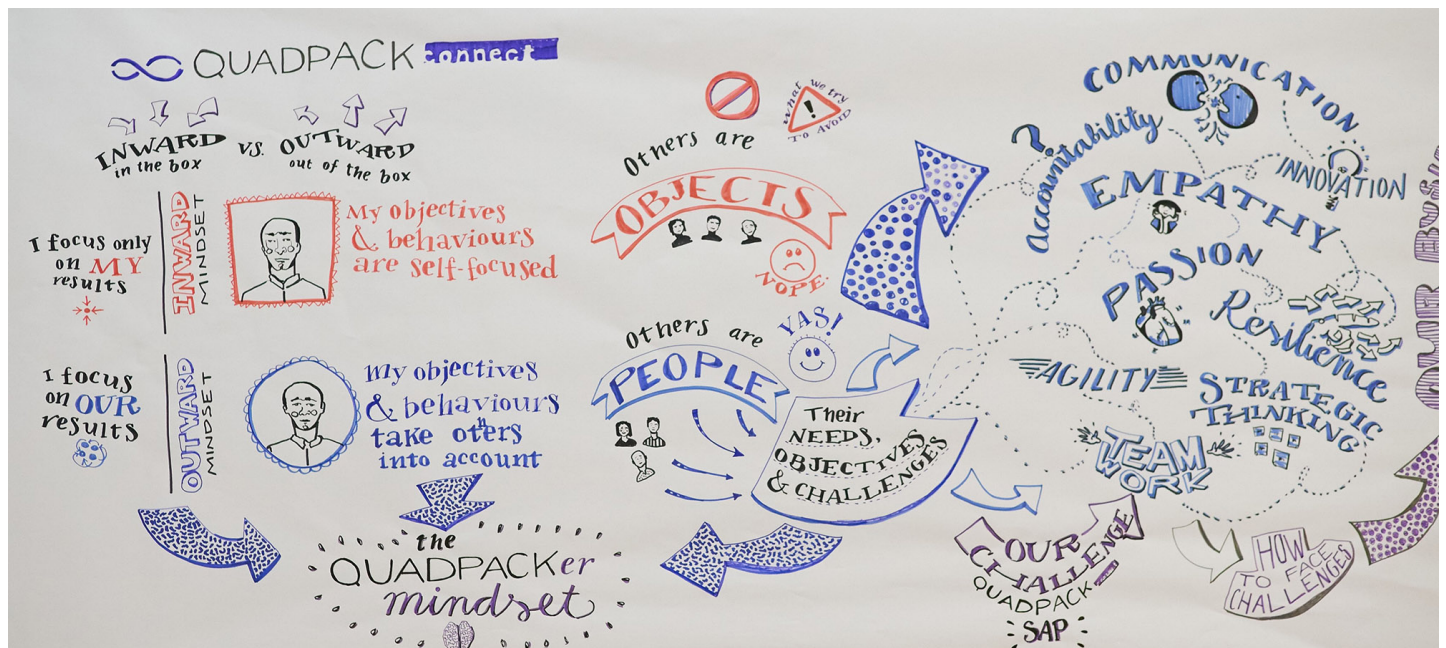 QUADPACK connect
INWARD
in the box
VS.
OUTWARD
out of the box
I focus only
on MY
results
INWARD
MINDSET
My objectives
& behaviours
are self-focused
I focus
on OUR
results
OUTWARD
MINDSET
my objectives
& behaviours
take others
into account
the
QUADPACKer
mindset
What we try
To AVOID
!
Others are
OBJECTS
NOPE.
Others are
YAS!
PEOPLE
Their
NEEDS,
OBJECTIVES
& CHALLENGES
COMMUNICATION
?
Accountability
INNOVATION
EMPATHY
PASSION
Resilience
AGILITY
STRATEGIC
THINKING
TEAM
WORK
OUR
CHALLENGE
QUADPACK
SAP
HOW
TO FACE
CHALLENGES
OUR